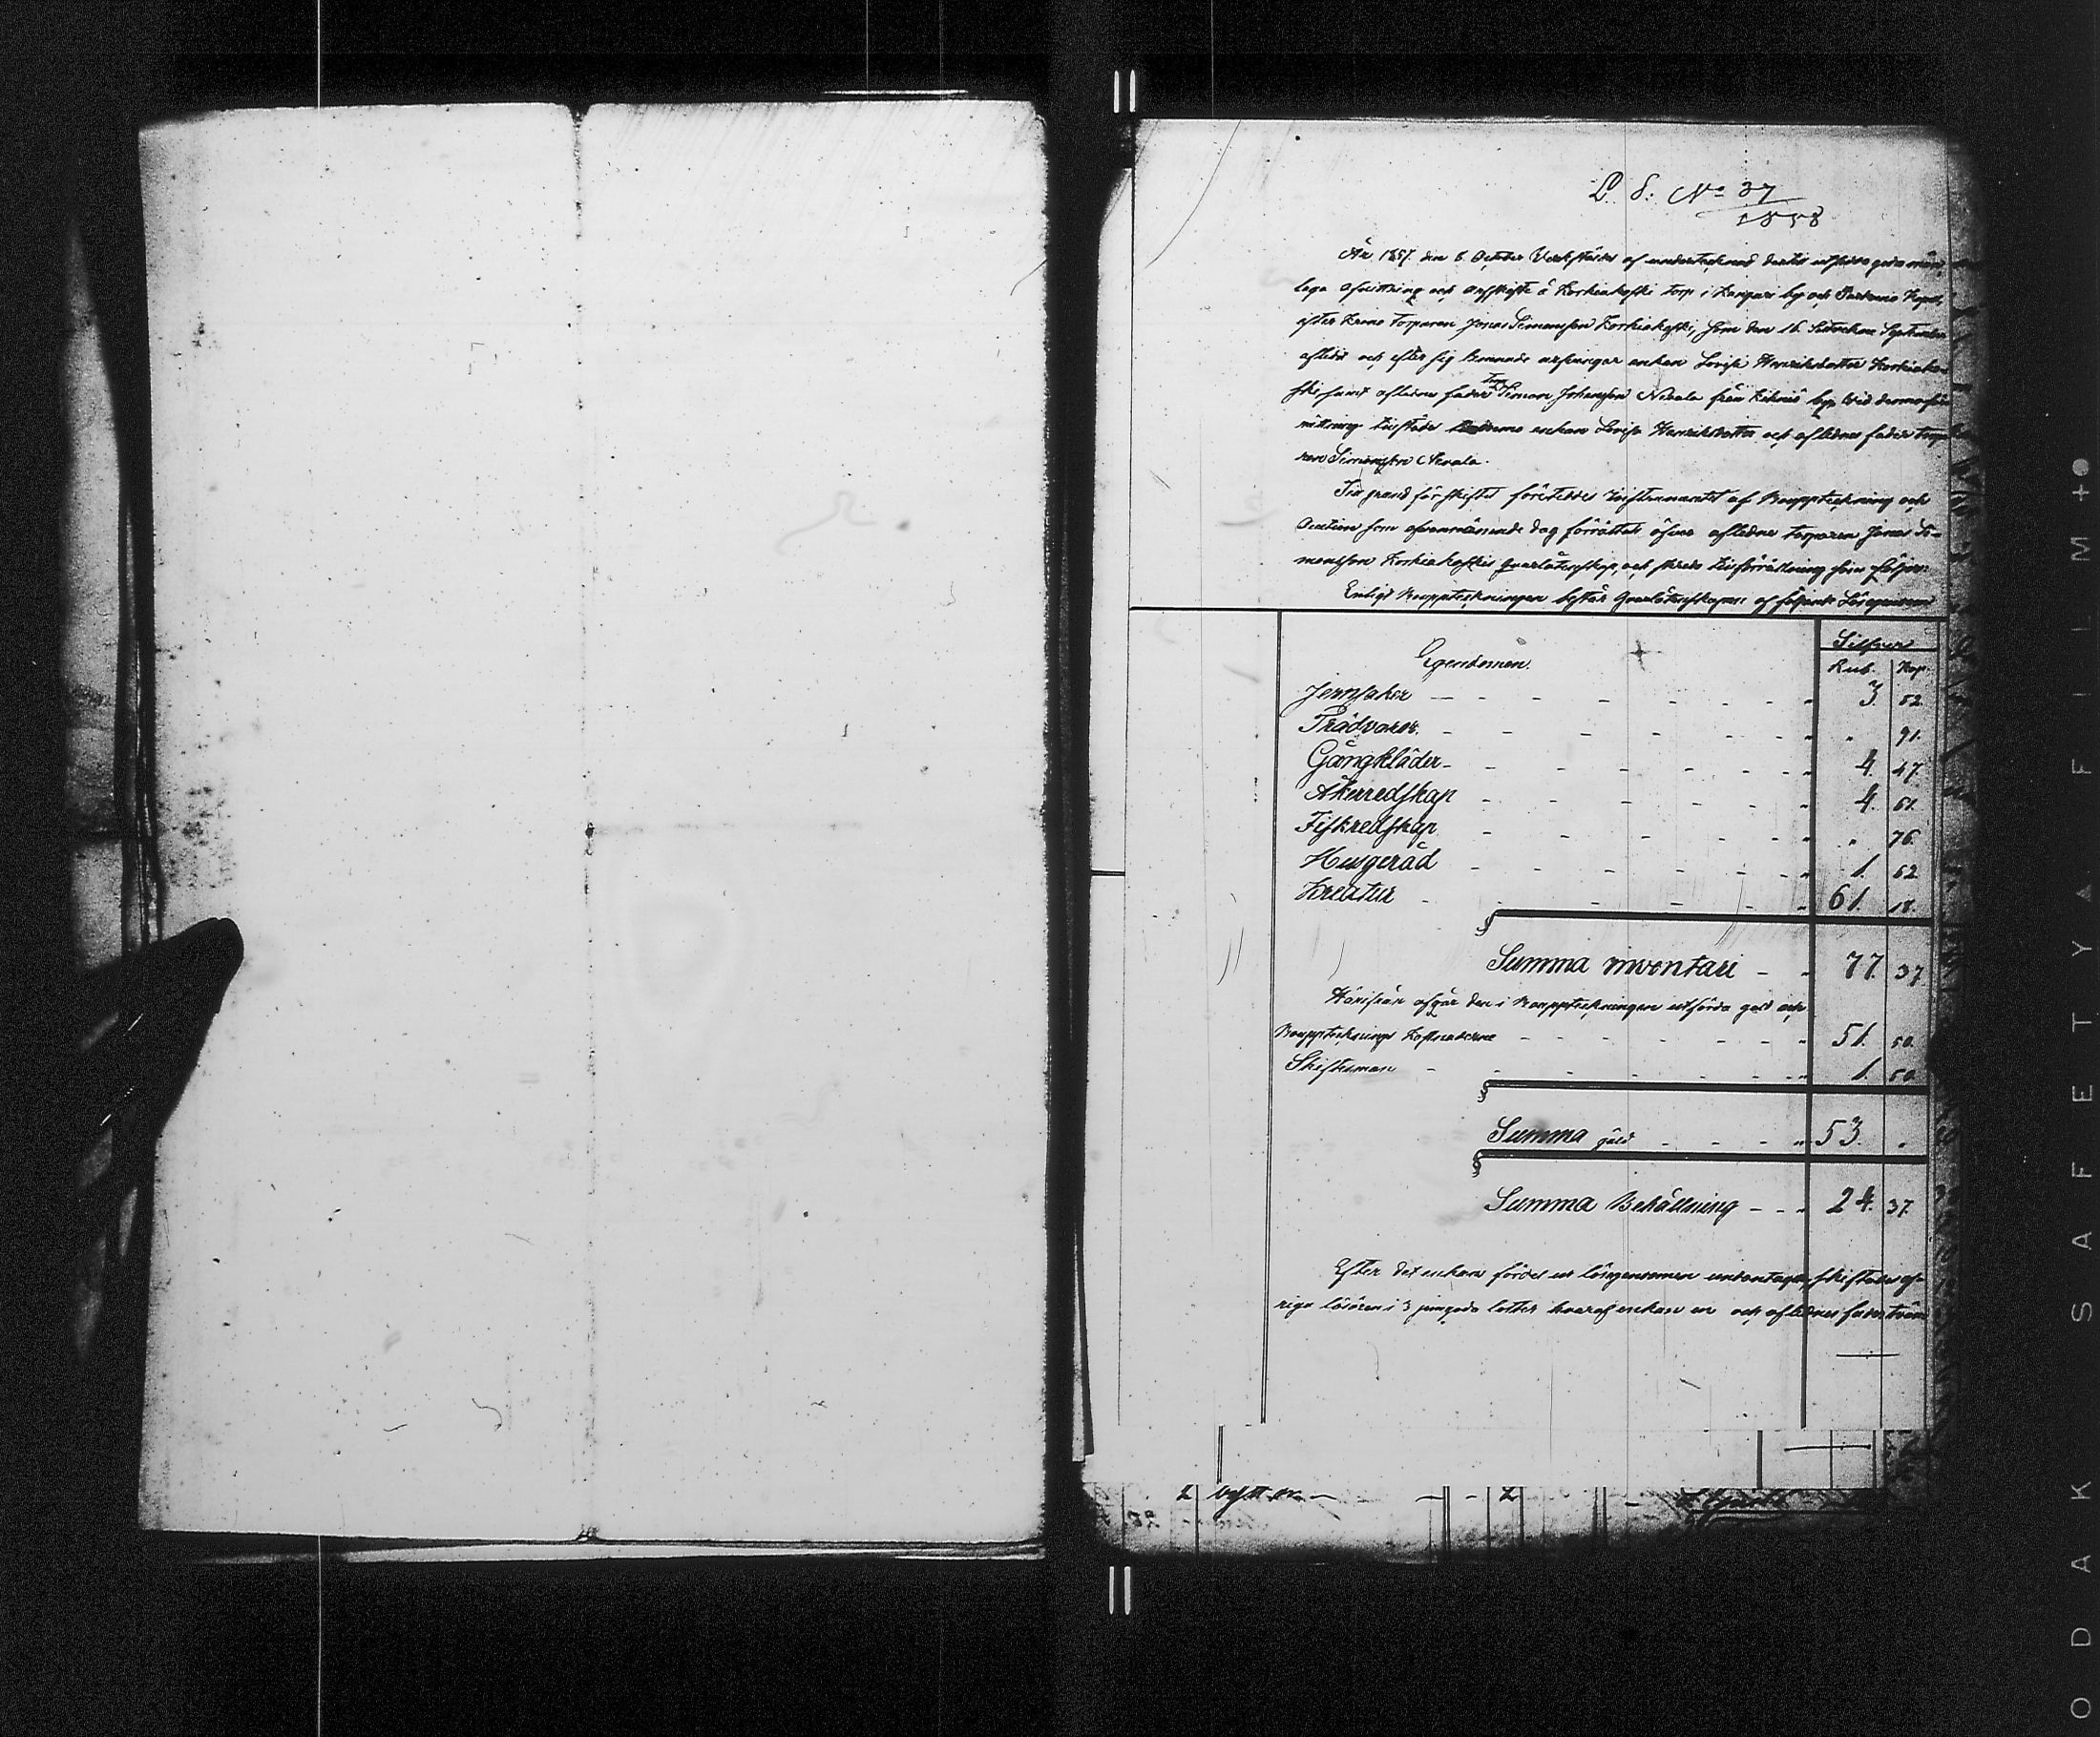 L. S. No 37
1858
År 1857. den 6. October Verkstäldes af undertecknad dertill utsedde gode män
laga afvittring och Arfskifte å Korkiakoski torp i Kangari by och Capell,
efter Krono torparen Jonas Simonsson Korkiakoski, som den 16. September
afledit och efter sig lemnade arfvingar enkan Lovisa Henriksdotter Korkiako-
ski, samt aflednes fader Simon Johansson Nevala från by. Wid denna för-
rättning enkan Lovisa Henriksdotter och aflednes fader torpa-
ren Simonsson Nevala.
Till grund för skiftet företeddes instrumentet af Bouppteckning och
Auction som ofvannämnde dag förrättats öfver aflednes torparen Jonas Si-
monsson Korkiakoskis qvarlåtenskap, och skreds till förrättning som följer:
Enligt Bouppteckningen består Qvarlåtenskapen af följande Lösegendom
Egendomen.
Silfver
Rub. Kop.
Jernsaker 3. 52.
Trädvaror. " 91.
Gångkläder 4. 47.
Åkerredskap 4. 61.
Fiskredskap " 76.
Husgeråd 1. 52.
Kreatur 61. 18.
Summa inventari 77. 37
Härifrån afgår den i Bouppteckningen utförda gäld och
Bouppteckings Kostnaderne 51. 50.
Skiftesman 1. 50.
Summa gäld 53. "
Summa Behållning 24. 37.
Efter det enkan fördel ur lösegendomen undantagits, skiftades öf-
riga lösören i 3 jemgoda lotter hvaraf enkan en och aflednes fader tvänne